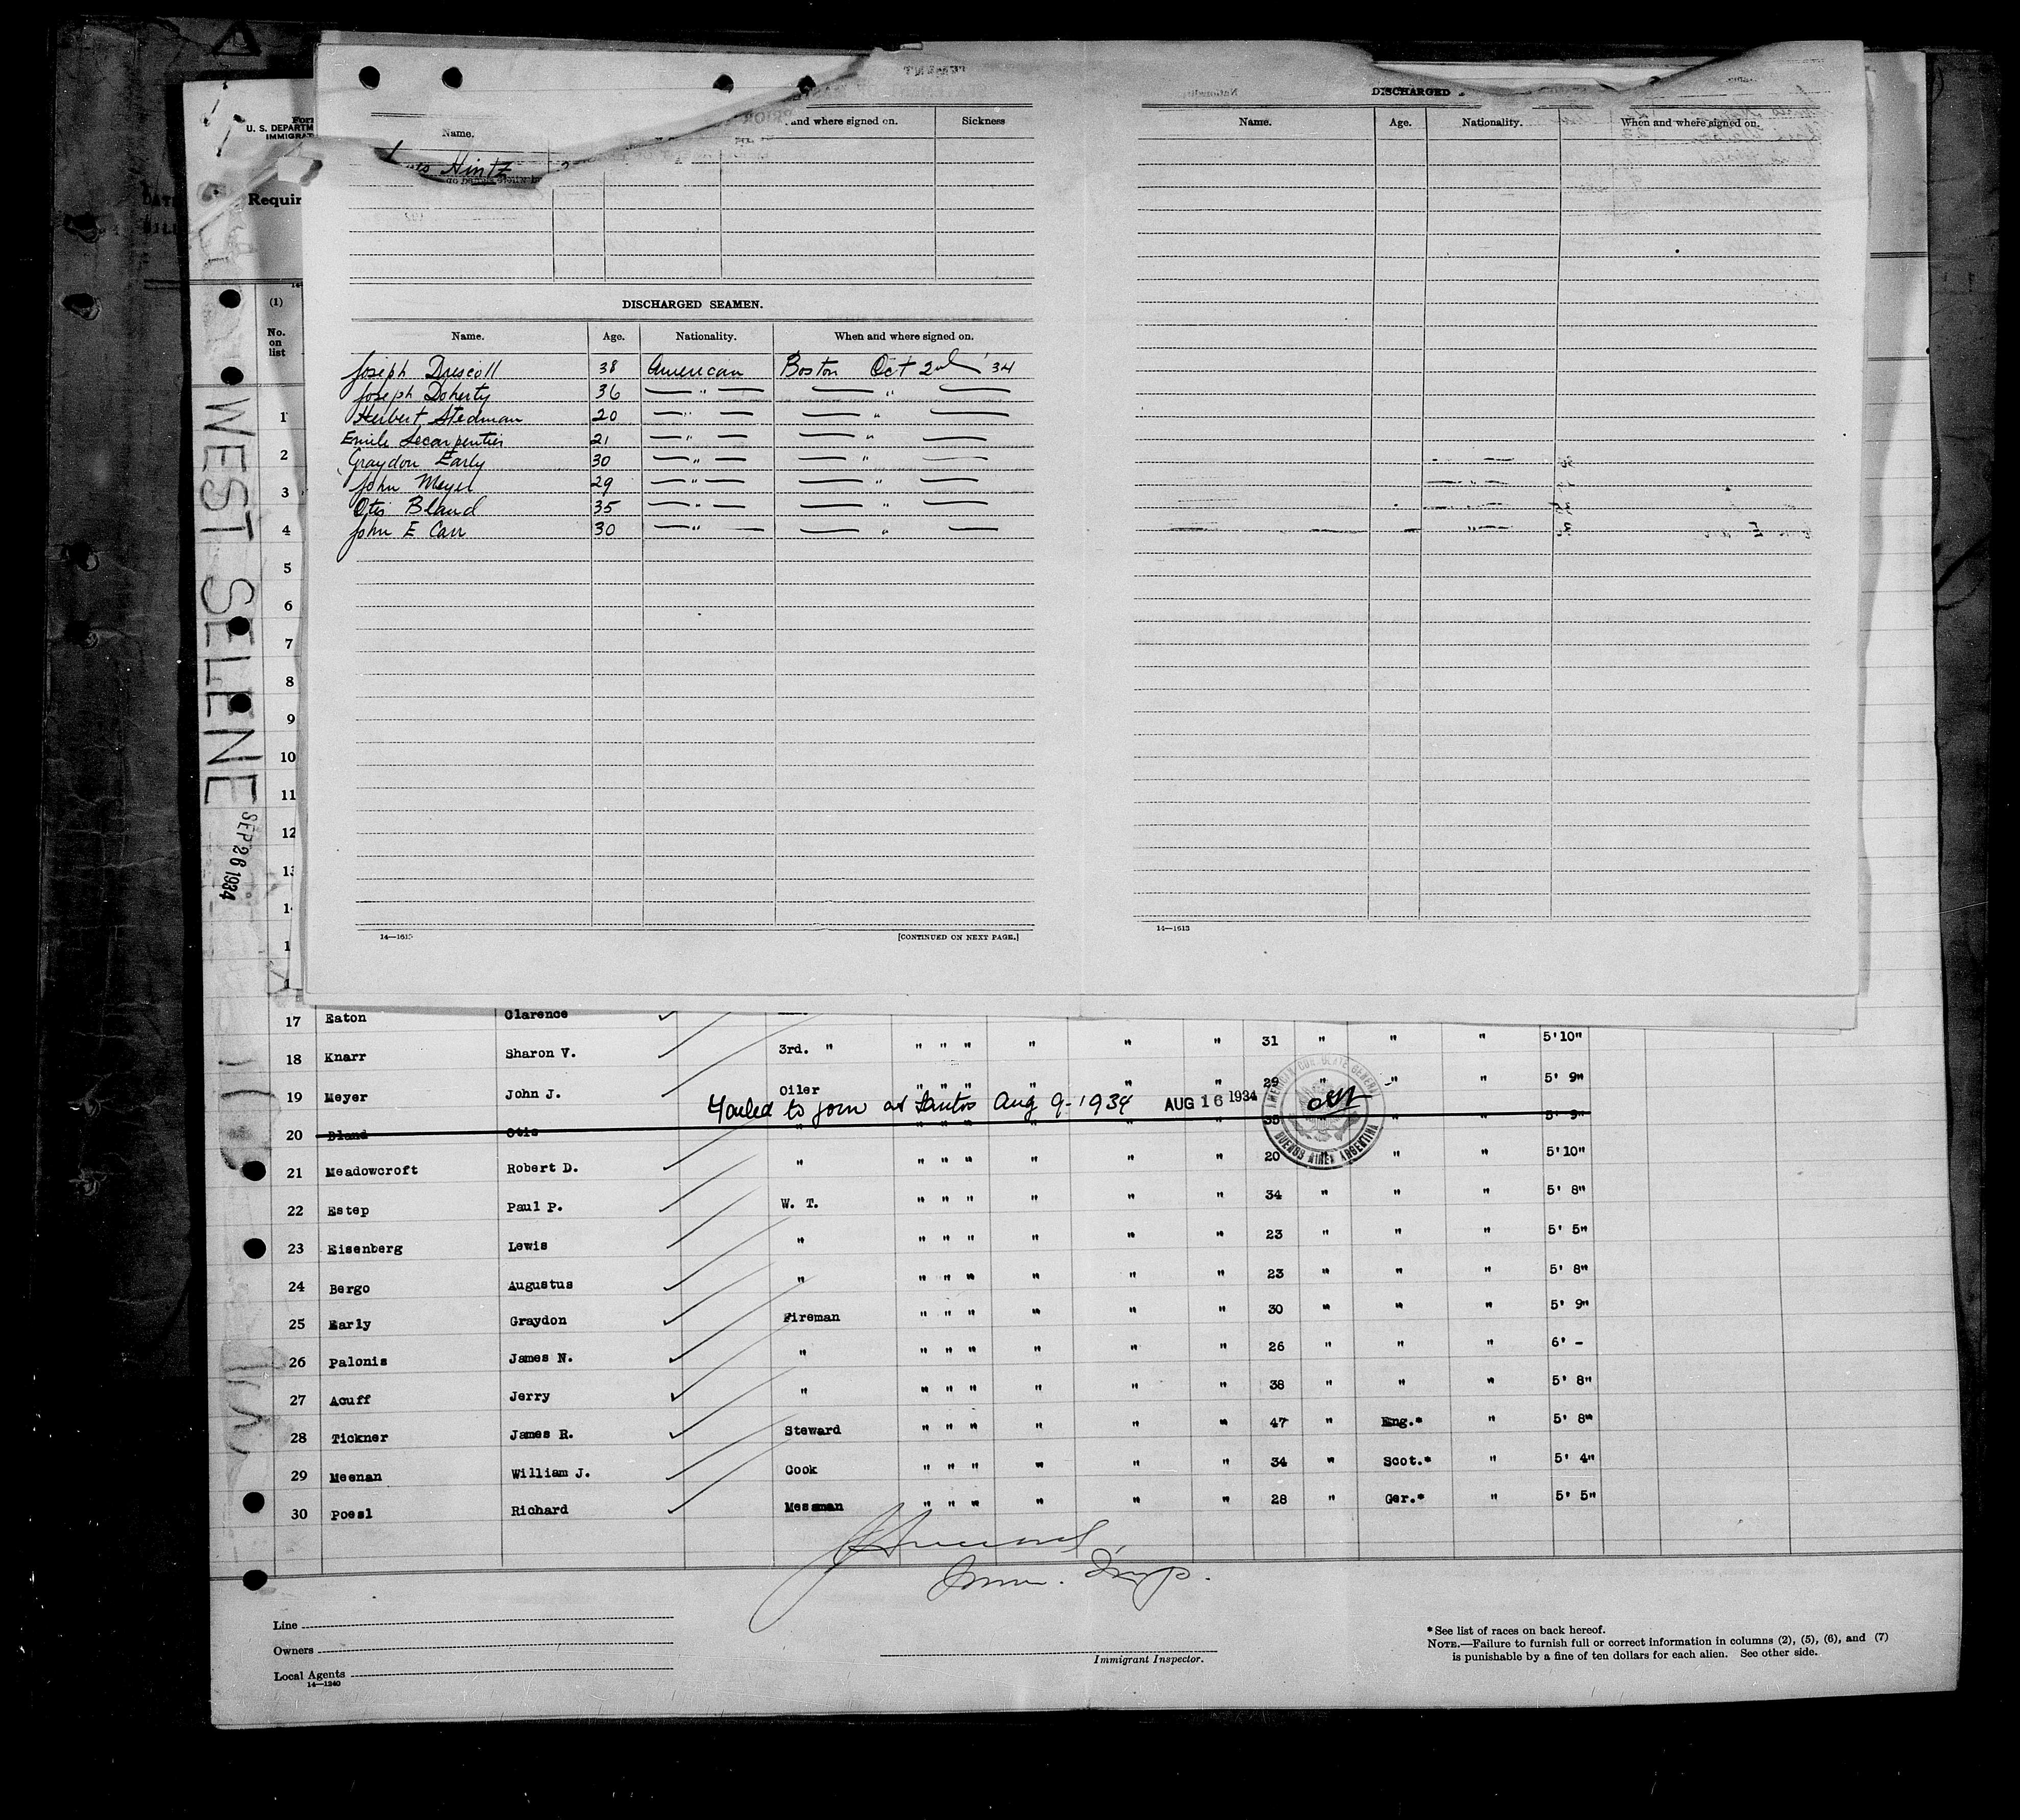 U. S. DEPARTM
IMMIGRAT
Requir
(1)
No.
on
list
WEST SELENE
SEP 26 1934
Name.
and where signed on.
Sickness
Hintz
DISCHARGED SEAMEN.
Name. Age. Nationality. When and where signed on.
Joseph Driscoll 38 American Boston Oct 2nd '34
Joseph Doherty 36 — " — — " —
Herbert Stedman 20 — " — — " —
Emile Lecarpentier 21 — " — — " —
Graydon Early 30 — " — — " —
John Meyer 29 — " — — " —
Otis Bland 35 — " — — " —
John E Carr 30 — " — — " —
14—1613
[CONTINUED ON NEXT PAGE.]
DISCHARGED
Name. Age. Nationality. When and where signed on.
14—1613
1
2
3
4
5
6
7
8
9
10
11
12
17 Eaton Clarence
18 Knarr Sharon V. 3rd. " " " " " " " 31 " " " 5'10"
19 Meyer John J. Oiler " " " " " " 29 " " " 5' 9"
Failed to join at Santos Aug 9-1934 AUG 16 1934
AMERICAN CONSULATE GENERAL
BUENOS AIRES ARGENTINA
20 Bland Otis " " " " " " " 35 " " 5' 9"
21 Meadowcroft Robert D. " " " " " " " 20 " " " 5'10"
22 Estep Paul P. W. T. " " " " " " 34 " " " 5' 8"
23 Eisenberg Lewis " " " " " " " 23 " " " 5' 5"
24 Bergo Augustus " " " " " " " 23 " " " 5' 8"
25 Early Graydon Fireman " " " " " " 30 " " " 5' 9"
26 Palonis James N. " " " " " " " 26 " " " 6' -
27 Acuff Jerry " " " " " " " 38 " " " 5' 8"
28 Tickner James R. Steward " " " " " " 47 " Eng.* " 5' 8"
29 Meenan William J. Cook " " " " " " 34 " Scot.* " 5' 4"
30 Poesl Richard Messman " " " " " " 28 " Ger.* " 5' 5"
Imm. Insp.
Line
Owners
Local Agents
14—1240
Immigrant Inspector.
*See list of races on back hereof.
NOTE.—Failure to furnish full or correct information in columns (2), (5), (6), and (7)
is punishable by a fine of ten dollars for each alien. See other side.